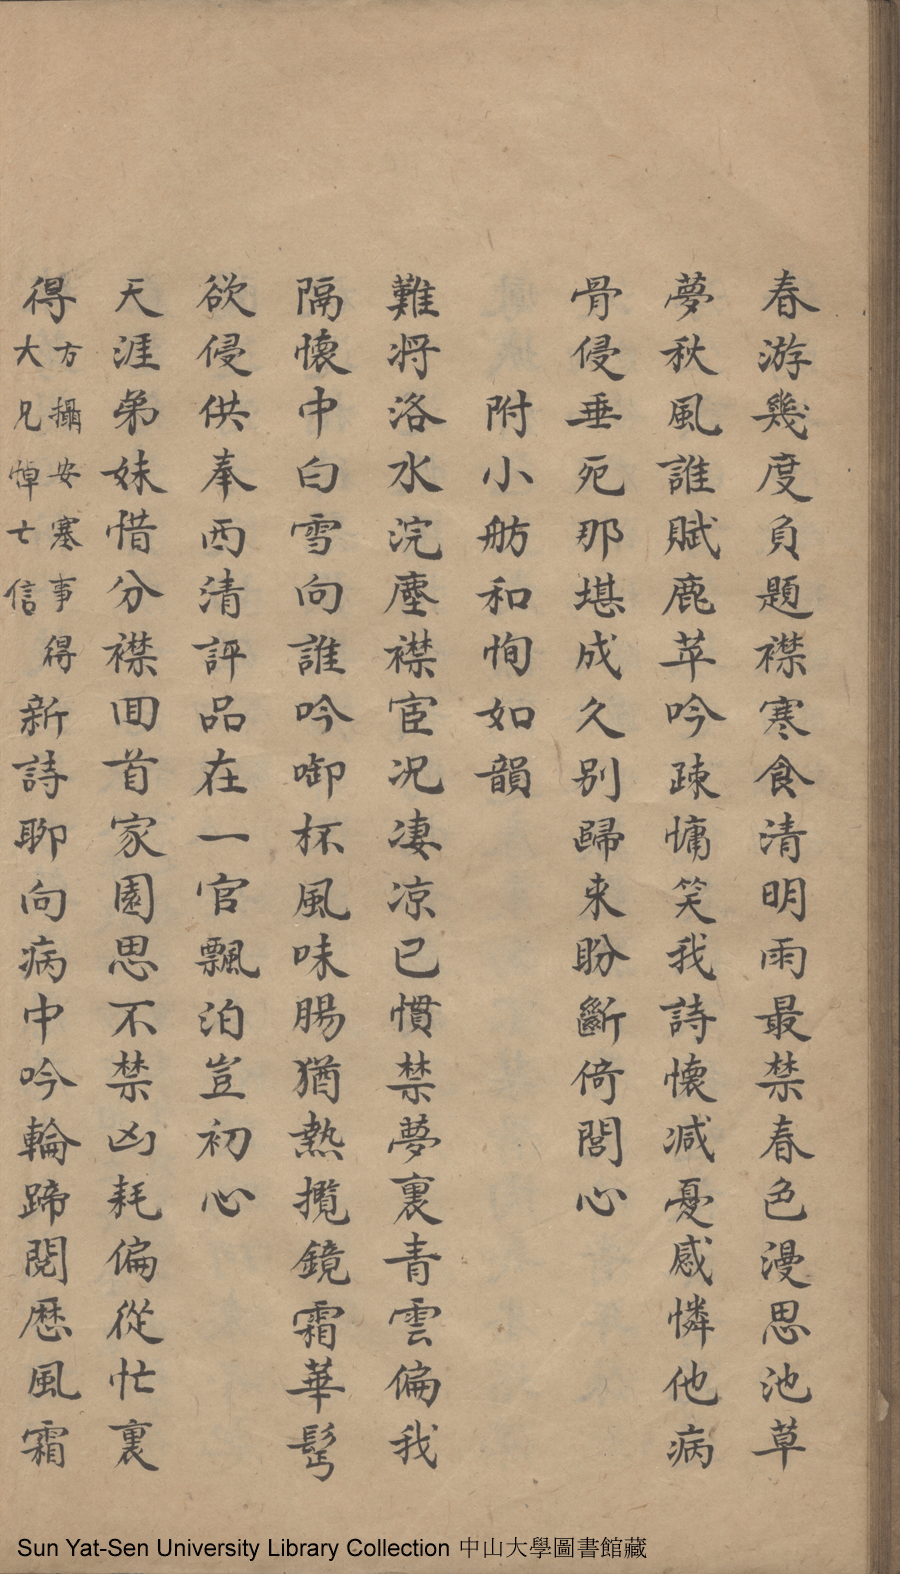 春游幾度負題襟寒食清明雨最禁春色漫思池草
夢秋風誰賦鹿苹吟疎慵笑我詩懷減憂感憐他病
骨侵垂死那堪成久别歸来盼斷倚閭心
附小舫和恂如韻
難将洛水浣塵襟宦况凄凉已慣禁夢裏青雲偏我
隔懷中白雪向誰吟啣杯風味腸猶熱攬鏡霜華髩
欲侵供奉西清評品在一官飄泊豈初心
天涯弟妹惜分襟囬首家園思不禁凶耗偏從忙裏
得方攝安塞事得大兄悼亡信新詩聊向病中吟輪蹄閱歷風霜
Sun Yat-Sen University Library Collection 中山大學圖書館藏